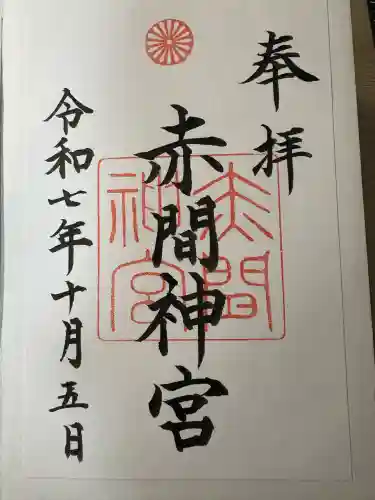 奉拝
赤間神宮
赤間
神宮
令和七年十月五日